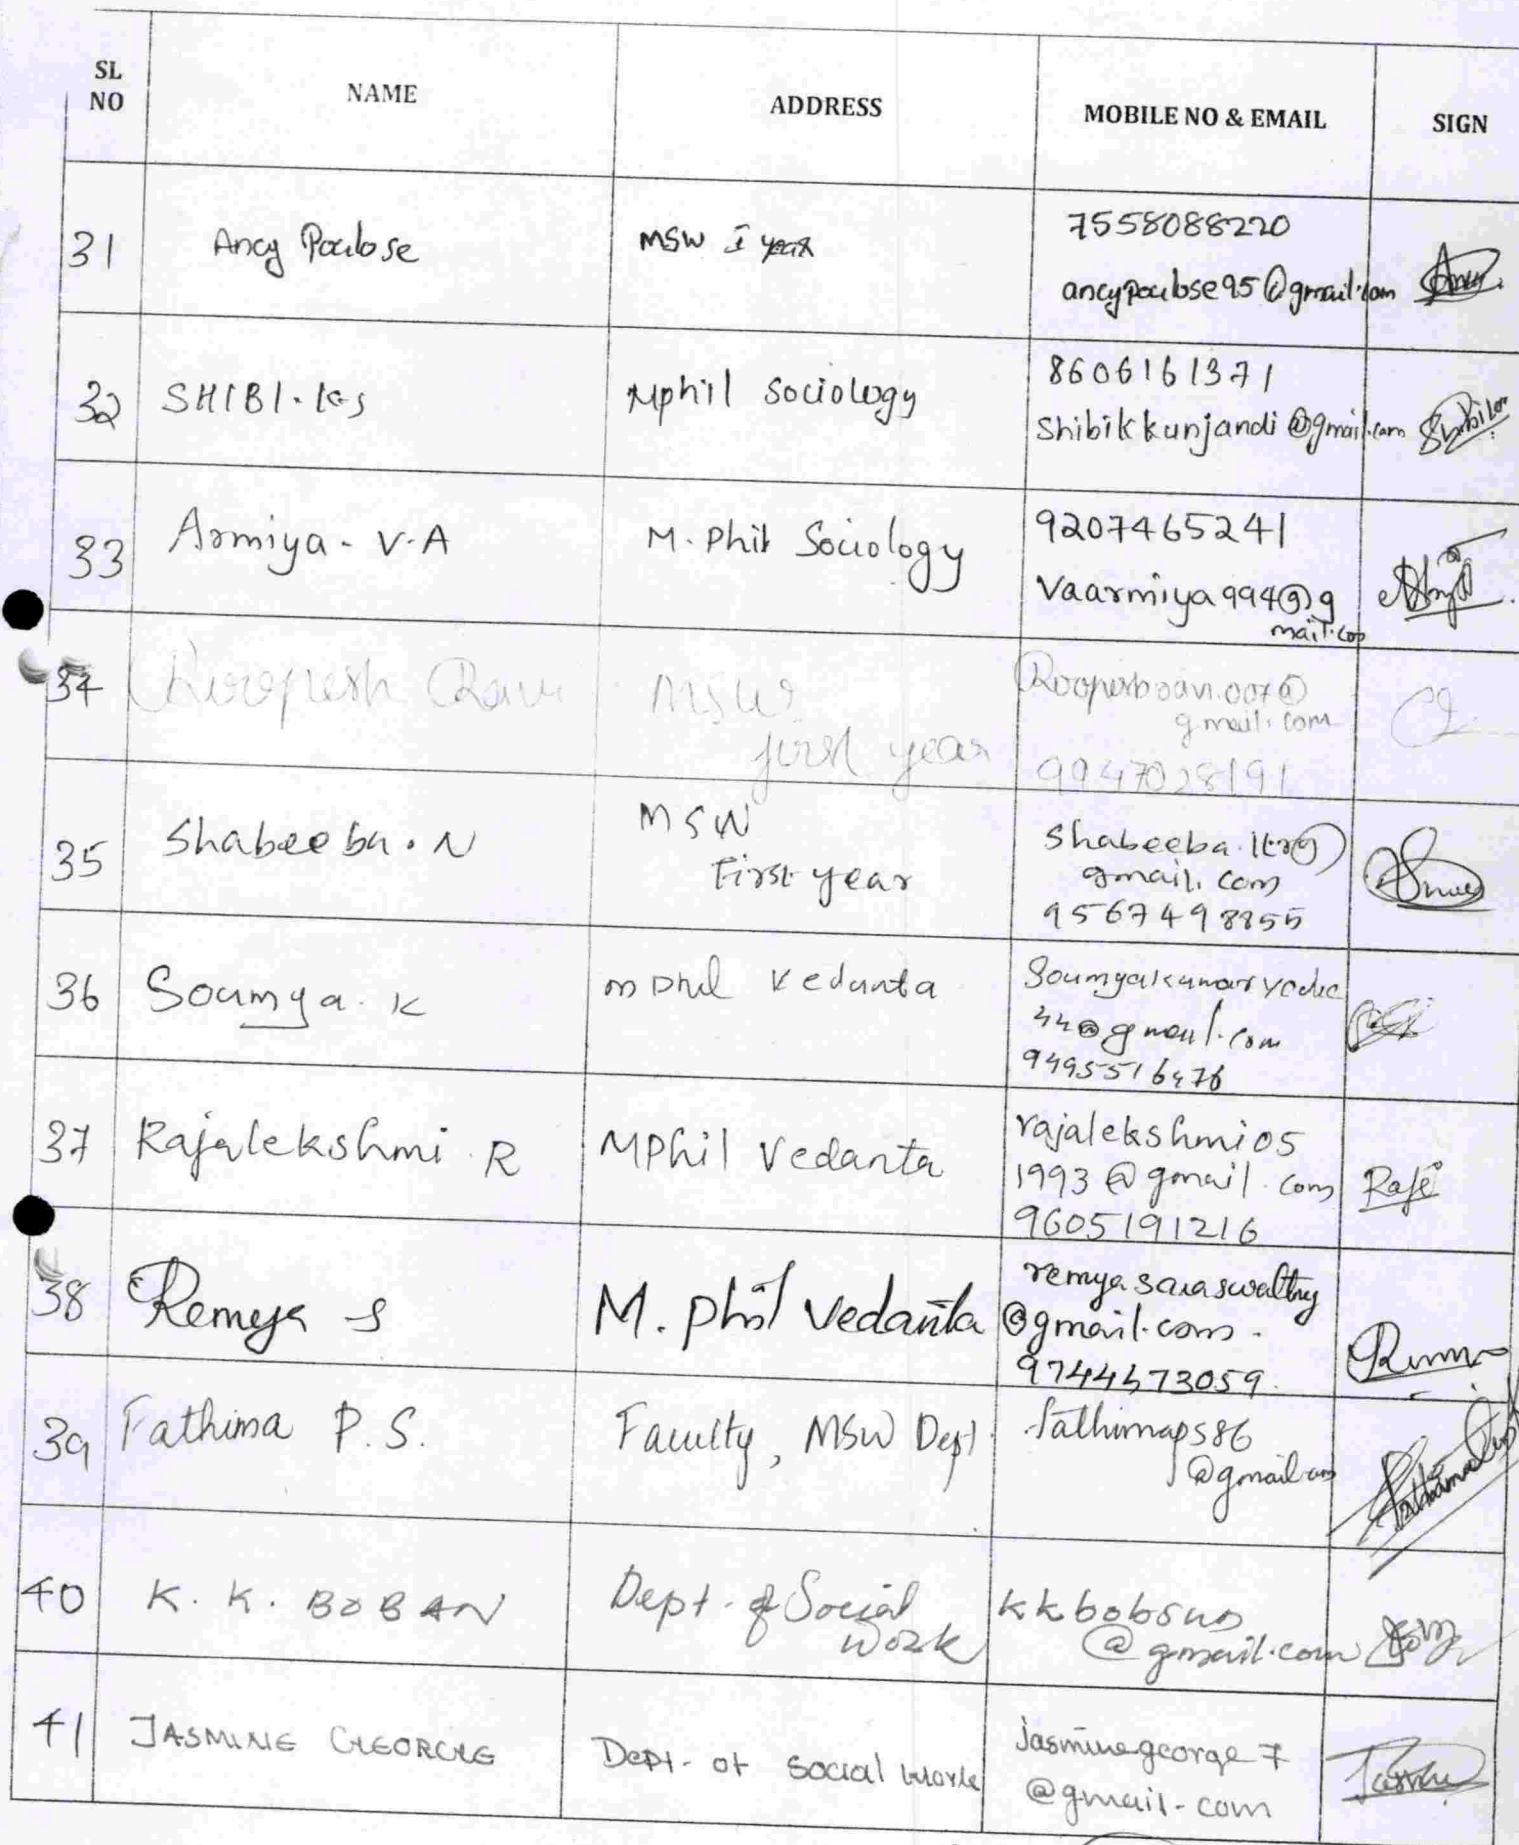 SL NO NAME ADDRESS MOBILE NO & EMAIL SIGN
31 Ancy Poulose MSW I year 7558088220
ancypoulose95@gmail.com
32 SHIBI.K.S Mphil Sociology 8606161371
Shibikkunjandi@gmail.com
33 Armiya - V.A M. Phil Sociology 9207465241
Vaarmiya994@g
mail.com
34 Roopesh Ravi MSW
gmail.com
first year 9947028191
35 Shabeeba. N MSW
First year gmail.com
9567498855
36 Soumya. K M Phil Vedanta
44@gmail.com
9495516476
37 Rajalekshmi. R MPhil Vedanta rajalekshmi05
1993@gmail.com Raji
9605191216
38 Remya S M. Phil Vedanta remyasaraswathy
@gmail.com.
9744473059.
39 Fathima P.S. Faculty, MSW Dept. fathimaps86
@gmail.com
40 K. K. BOBAN Dept. of Social
Work @gmail.com
41 JASMINE GEORGE Dept. of Social Work jasminegeorge7
@gmail.com